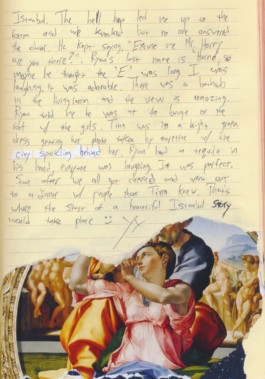 Istanbul. The bell hop led me up to the
room and we knocked but no one answered
the door. He kept saying, "Excuse me Mr. Harry
are you there?"; Ryan's last name is "Harre", so
maybe he thought the "E" was long. I was
laughing, it was adorable. There was a
in the livingroom and the view is amazing.
Ryan said he was at the lounge on the
roof w/ the girls. Tina was in a light green
dress getting her photo taken by everyone w/ the
city sparkling behind her, Ryan had a tequila in
his hand, everyone was laughing. It was perfect.
Soon after we all got dressed and went out
to a dinner w/ people that Tina knew. That's
where the start of a beautiful Istanbul story
would take place :)